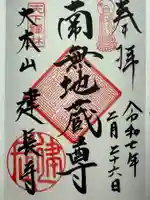 奉拝
令和七年
二月二十六日
南無地蔵尊
天下禅林
大本山
建長寺